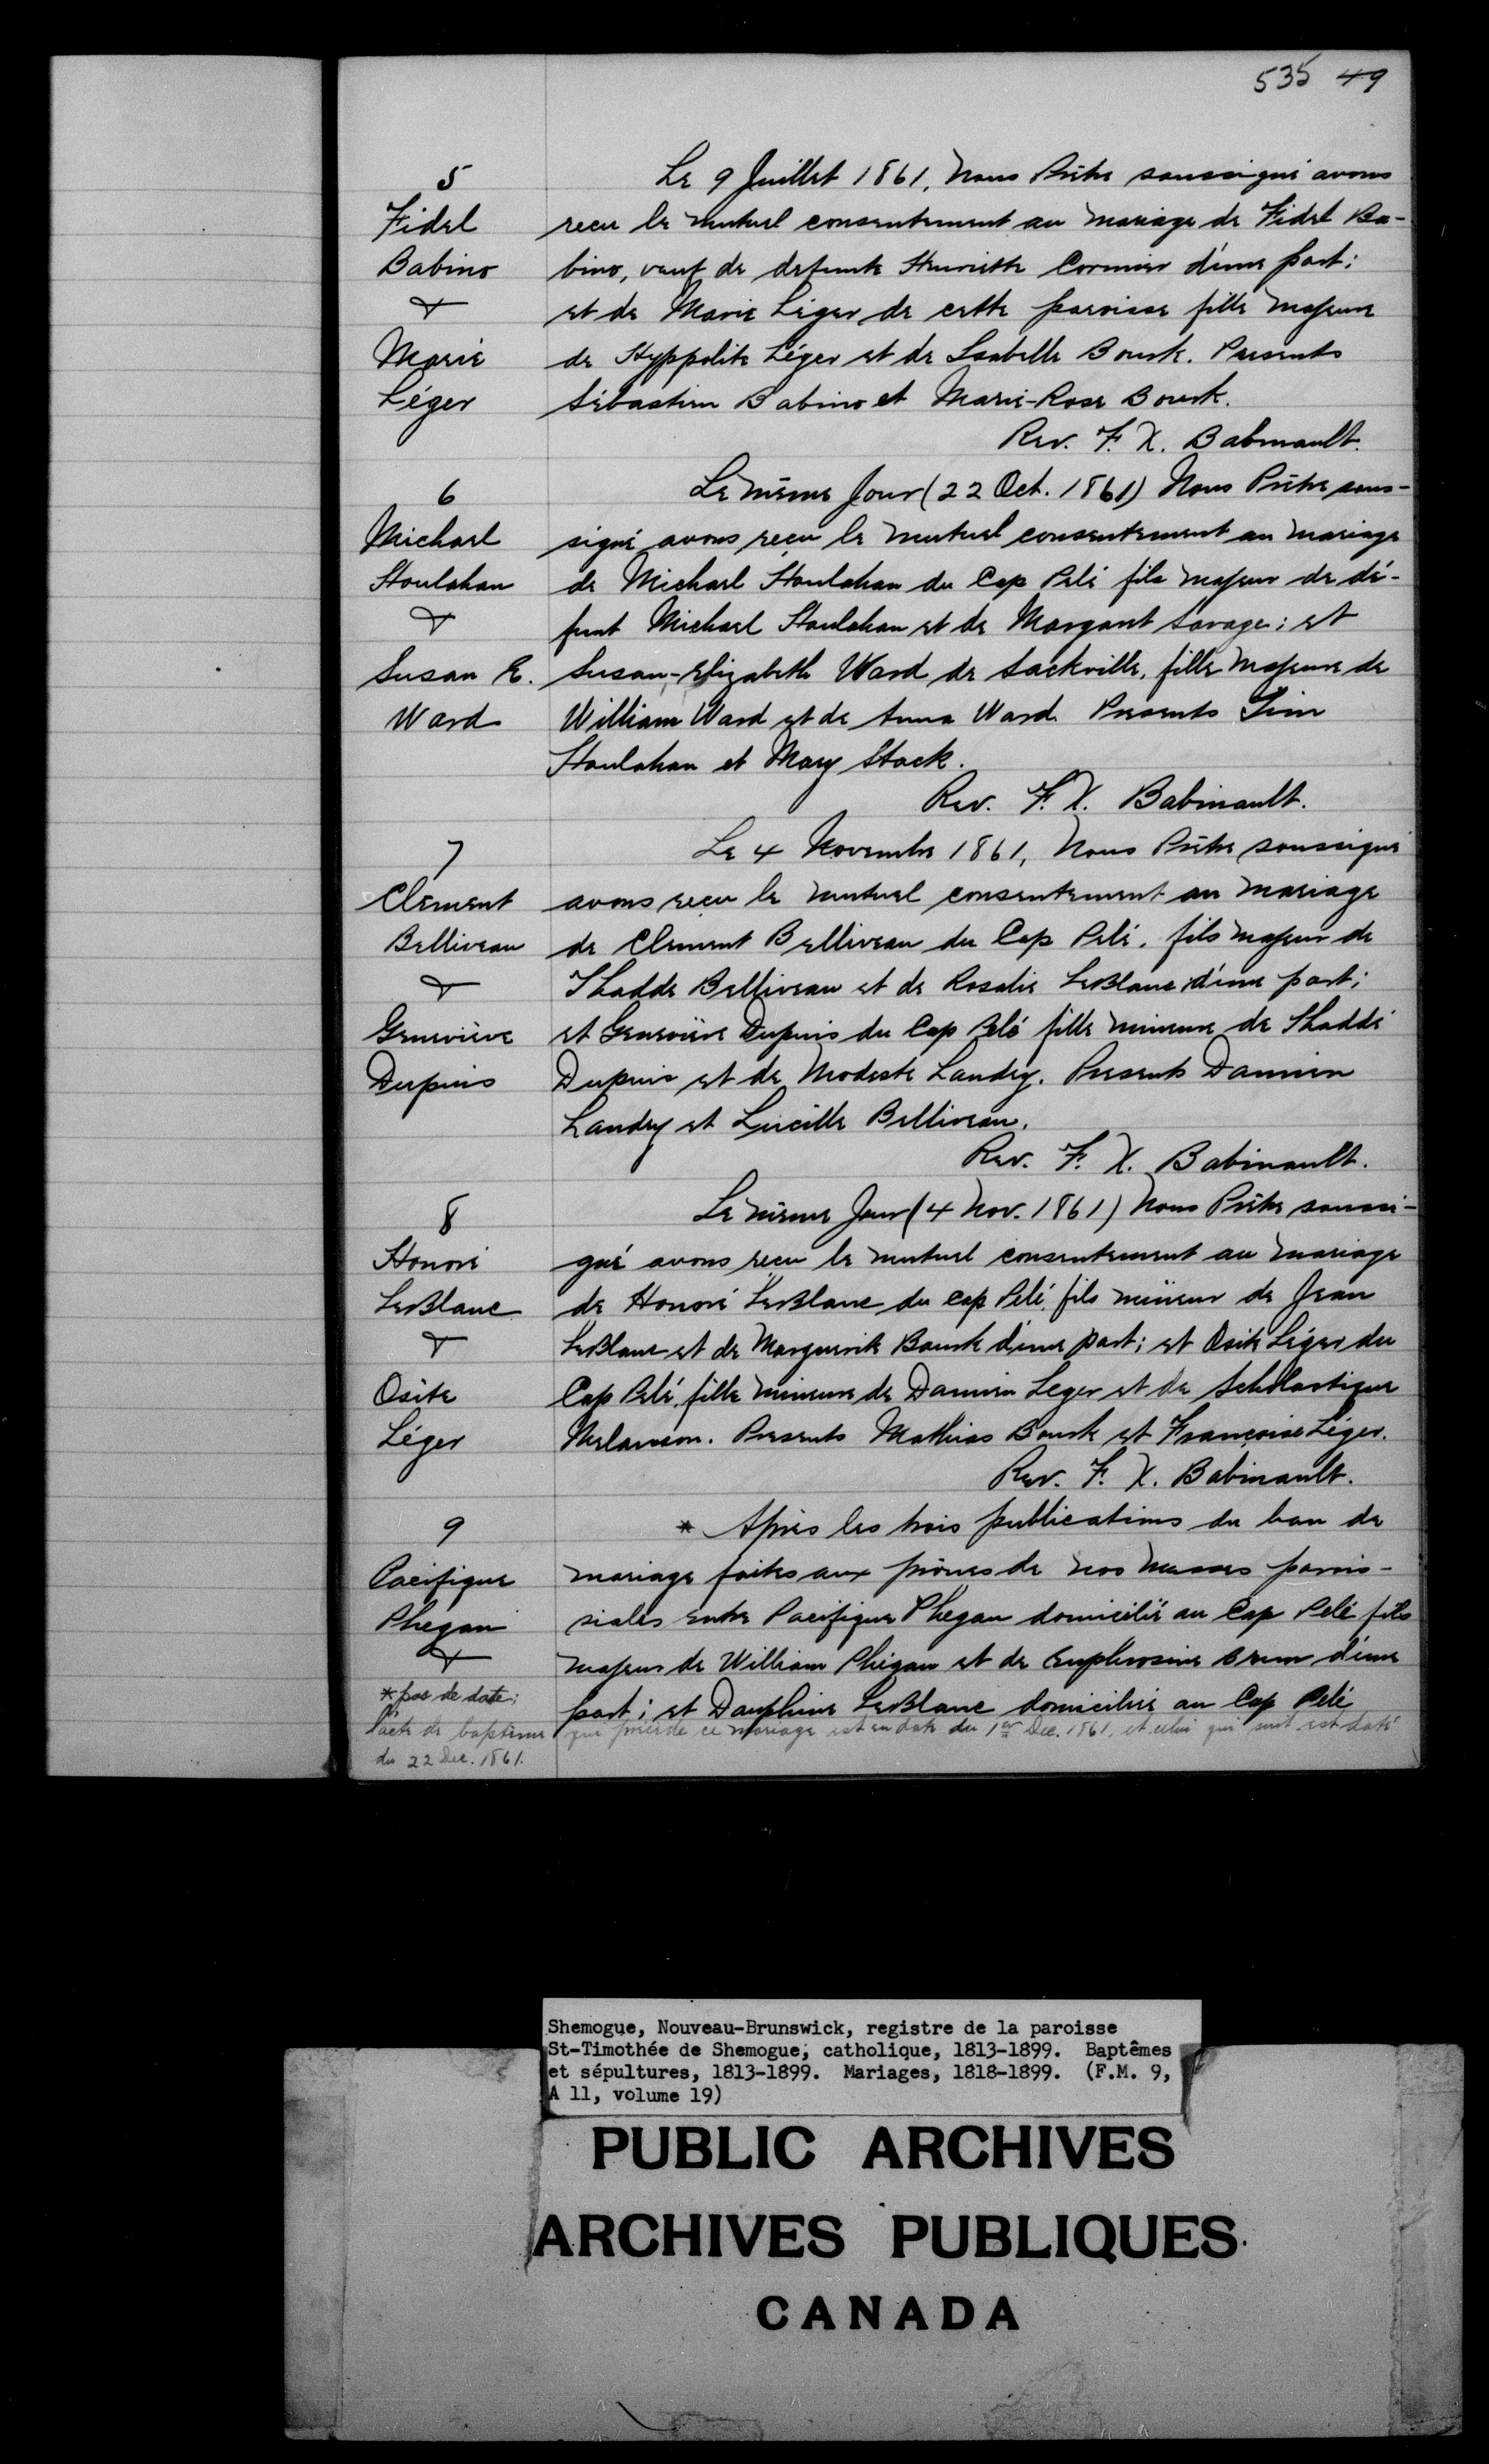 535 49
5
Fidel
Babino
&
Marie
Léger
Le 9 Juillet 1861, Nous Prêtre soussigné avons
recu le mutuel consentement au mariage de Fidel Ba-
bino, veuf de defunte Henriette Cormier d'une part;
et de Marie Léger de cette paroisse fille majeure
de Hyppolite Léger et de Isabelle Bourk. Presents
Sébastien Babino et Marie-Rose Bourk.
Rev. F. X. Babinault.
6
Michael
Houlahan
&
Susan E.
Ward
Le même Jour (22 Oct. 1861) Nous Prêtre sous-
signé avons reçu le mutuel consentement au mariage
de Michael Houlahan du Cap Pelé fils majeur de dé-
funt Michael Houlahan et de Margaret Savage; et
Susan-Elizabeth Ward de Sackville, fille majeure de
William Ward et de Anna Ward. Presents Tim
Houlahan et Mary Stack.
Rev. F. X. Babinault.
7
Clément
Belliveau
&
Geneviève
Dupuis
Le 4 Novembre 1861, Nous Prêtre soussigné
avons reçu le mutuel consentement au mariage
de Clement Belliveau du Cap Pelé, fils majeur de
Thadde Belliveau et de Rosalie LeBlanc d'une part;
et Geneviève Dupuis du Cap Pelé fille mineure de Thaddé
Dupuis et de Modeste Landry. Presents Damien
Landry et Lucille Belliveau.
Rev. F. X. Babinault.
8
Honoré
LeBlanc
&
Osite
Léger
Le même Jour (4 Nov. 1861) Nous Prêtre soussi-
gné avons reçu le mutuel consentement au mariage
de Honoré LeBlanc du Cap Pelé, fils mineur de Jean
LeBlanc et de Marguerite Bourk d'une part; et Osite Léger du
Cap Pelé, fille mineure de Damien Leger et de Scholastique
Melanson. Presents Mathias Bourk et Françoise Léger.
Rev. F. X. Babinault.
9
Pacifique
Phegan
&
* Après les trois publications du ban de
mariage faites aux prônes de nos messes parois-
siales entre Pacifique Phegan domicilié au Cap Pelé fils
majeur de William Phégan et de Euphrosine Brun d'une
part; et Dauphine LeBlanc domiciliée au Cap Pelé
* pas de date;
l'acte de baptême qui précède ce mariage est en date du 1er Dec. 1861, et celui qui suit est daté
du 22 Dec. 1861.
Shemogue, Nouveau-Brunswick, registre de la paroisse
St-Timothée de Shemogue, catholique, 1813-1899. Baptêmes
et sépultures, 1813-1899. Mariages, 1818-1899. (F.M. 9,
A 11, volume 19)
PUBLIC ARCHIVES
ARCHIVES PUBLIQUES
CANADA